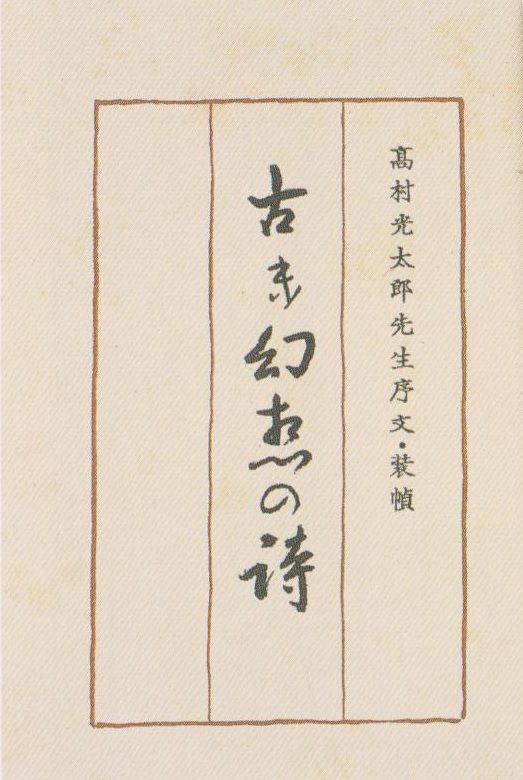 高村光太郎先生序文・装幀
古き幻想の詩